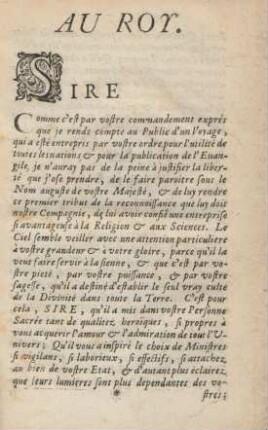 AU ROY.
SIRE
Comme c'est par vostre commandement exprés
que je rends compte au Public d'un Voyage,
qui a esté entrepris par vostre ordre pour l'utilité de
toutes les nations & pour la publication de l'Euan-
gile, je n'auray pas de la peine à justifier la liber-
té que j'ose prendre, de le faire paroître sous le
Nom auguste de vostre Majesté, & de luy rendre
ce premier tribus de la reconnoissance que luy doit
nostre Compagnie, de lui avoir confié une entreprise
si avantageuse à la Religion & aux Sciences. Le
Ciel semble veiller avec une attention particuliere
à vostre grandeur & à vôtre gloire, parce qu'il la
veut faire servir à la sienne, & que c'est par vo-
stre pieté, par vostre puissance, & par vostre
sagesse, qu'il a destiné d'établir le seul vray culte
de la Divinité dans toute la Terre. C'est pour
cela, SIRE, qu'il a mis dans vostre Personne
Sacrée tant de qualitez heroïques, si propres à
vous acquerir l'amour & l'admiration de tout l'U-
nivers; Qu'il vous a inspiré le choix de Ministres
si vigilans, si laborieux, si effectifs, si attachez
au bien de vostre Etat, & d'autant plus éclairez,
que leurs lumieres sont plus dependantes des vo-
* stres;